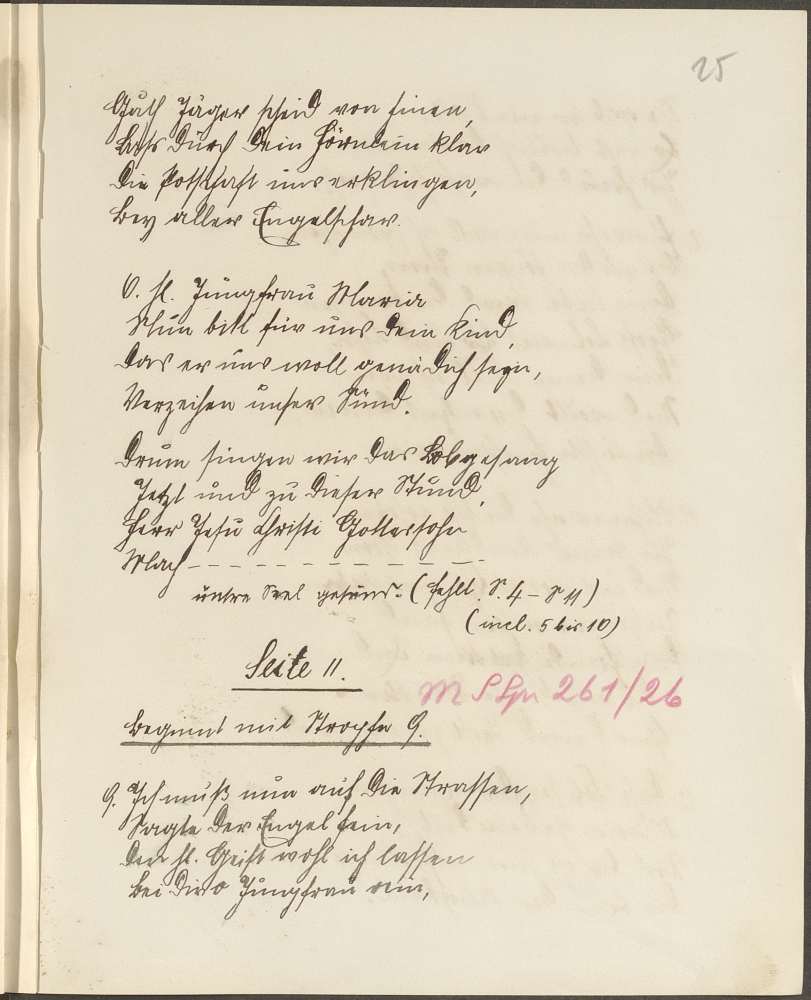 25
Guth Jäger scheid von hinen,
Laß durch dein Hörnlein klar
die Pottschaft uns erklingen,
bey aller Engelschar.
O. hl. Jungfrau Maria
Nun bitt für uns dein Kind,
das er uns woll genädich seyn,
Verzeihen unser Sünd.
Drum singen wir das Lobgesang
Jetzt und zu dieser Stund,
Herr Jesu Christi Gottessohn
Mach - - - - - - - - - - - -
unsre Seel gesund. (fehlt S. 4 – S 11)
(incl. 5 bis 10)
Seite 11.
M S Lpr 261/26
beginnt mit Strophe 9.
9. Ich muß nun auf die Strassen,
Sagte der Engel fein,
den hl. Geist wohl ich lassen
bei dir o Jungfrau rein,